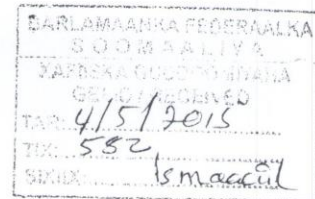 BARLAMAANKA FEDERAALKA
SOOMAALIYA
XAFIISKA GUDOOMIYAHA
RECEIVED
TAR: 4/5/2015
TIX: 552
Ismaaciil